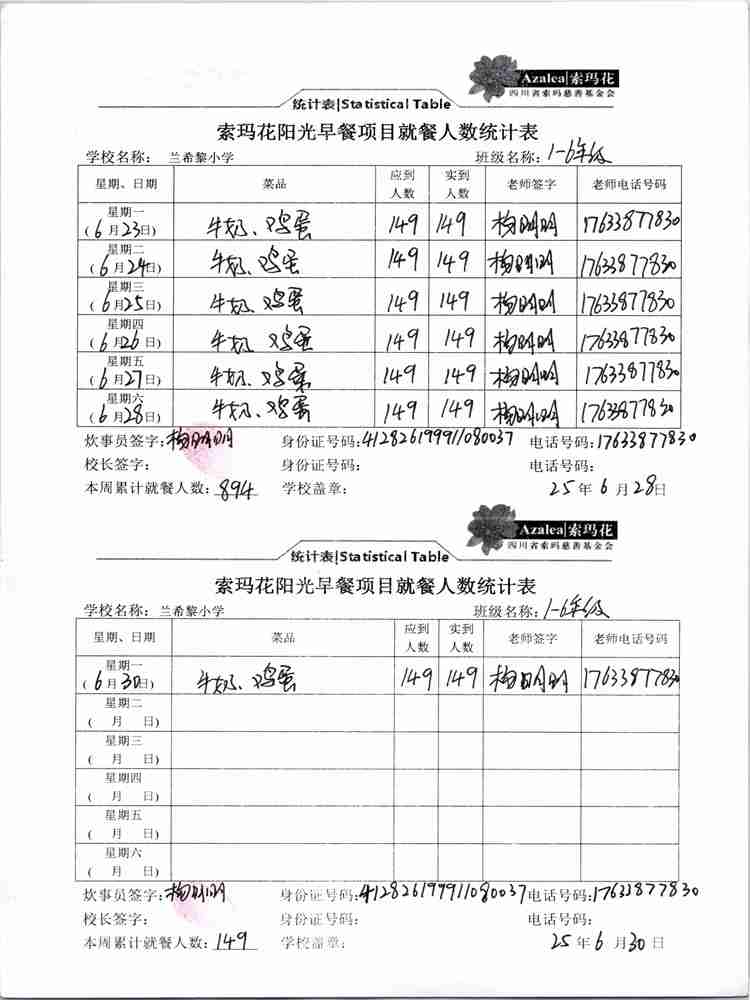 Azalea|索玛花
四川省索玛慈善基金会
统计表|Statistical Table
索玛花阳光早餐项目就餐人数统计表
学校名称： 兰希黎小学 班级名称：1-6年级
星期、日期 菜品 应到人数 实到人数 老师签字 老师电话号码
星期一 (6月23日) 牛奶、鸡蛋 149 149 梅明明 17633877830
星期二 (6月24日) 牛奶、鸡蛋 149 149 梅明明 17633877830
星期三 (6月25日) 牛奶、鸡蛋 149 149 梅明明 17633877830
星期四 (6月26日) 牛奶、鸡蛋 149 149 梅明明 17633877830
星期五 (6月27日) 牛奶、鸡蛋 149 149 梅明明 17633877830
星期六 (6月28日) 牛奶、鸡蛋 149 149 梅明明 17633877830
炊事员签字：梅明明 身份证号码：412826199911080037 电话号码：17633877830
校长签字： 身份证号码： 电话号码：
本周累计就餐人数：894 学校盖章： 25年6月28日
Azalea|索玛花
四川省索玛慈善基金会
统计表|Statistical Table
索玛花阳光早餐项目就餐人数统计表
学校名称： 兰希黎小学 班级名称：1-6年级
星期、日期 菜品 应到人数 实到人数 老师签字 老师电话号码
星期一 (6月30日) 牛奶、鸡蛋 149 149 梅明明 17633877830
星期二 ( 月 日)
星期三 ( 月 日)
星期四 ( 月 日)
星期五 ( 月 日)
星期六 ( 月 日)
炊事员签字：梅明明 身份证号码：412826199911080037 电话号码：17633877830
校长签字： 身份证号码： 电话号码：
本周累计就餐人数：149 学校盖章： 25年6月30日